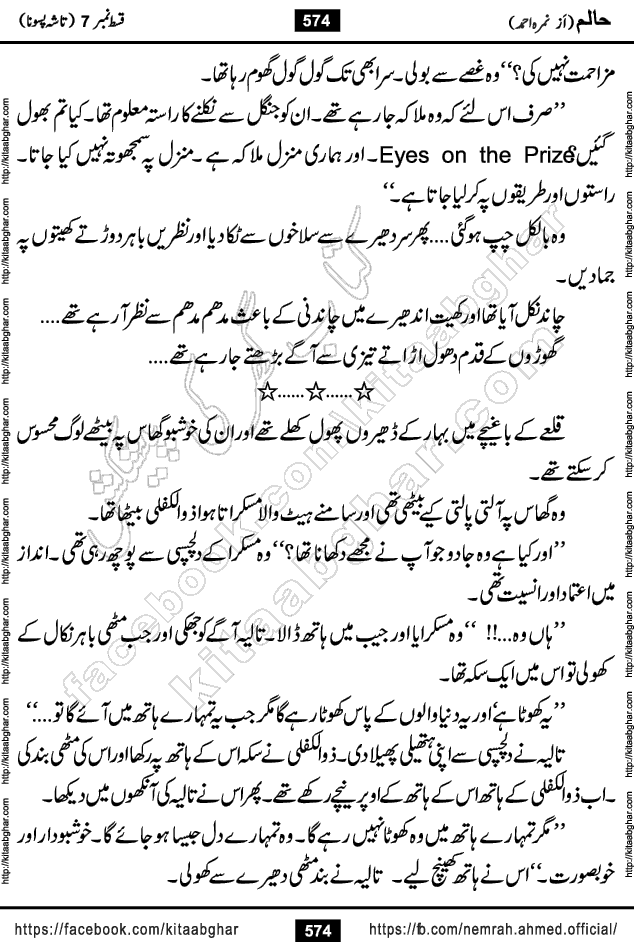 حالم (از نمرہ احمد)
574
قسط نمبر 7 (تاشہ پسونا)
مزاحمت نہیں کی؟‘‘ وہ غصے سے بولی۔ سر ابھی تک گول گول گھوم رہا تھا۔
’’صرف اس لئے کہ وہ ملاکہ جا رہے تھے۔ ان کو جنگل سے نکلنے کا راستہ معلوم تھا۔ کیا تم بھول
گئیں Eyes on the Prize؟۔ اور ہماری منزل ملاکہ ہے۔ منزل پہ سمجھوتہ نہیں کیا جاتا۔
راستوں اور طریقوں پہ کر لیا جاتا ہے۔‘‘
وہ بالکل چپ ہو گئی.... پھر سر دھیرے سے سلاخوں سے ٹکا دیا اور نظریں باہر دوڑتے کھیتوں پہ
جما دیں۔
چاند نکل آیا تھا اور کھیت اندھیرے میں چاندنی کے باعث مدھم مدھم سے نظر آ رہے تھے....
گھوڑوں کے قدم دھول اڑاتے تیزی سے آگے بڑھتے جا رہے تھے....
☆......☆......☆
قلعے کے باغیچے میں بہار کے ڈھیروں پھول کھلے تھے اور ان کی خوشبو گھاس پہ بیٹھے لوگ محسوس
کر سکتے تھے۔
وہ گھاس پہ آلتی پالتی کیے بیٹھی تھی اور سامنے ہیٹ والا مسکراتا ہوا ذوالکفلی بیٹھا تھا۔
’’اور کیا ہے وہ جادو جو آپ نے مجھے دکھانا تھا؟‘‘ وہ مسکرا کے دلچسپی سے پوچھ رہی تھی۔ انداز
میں اعتماد اور انسیت تھی۔
’’ہاں وہ...!!‘‘ وہ مسکرایا اور جیب میں ہاتھ ڈالا۔ تالیہ آگے کو جھکی اور جب مٹھی باہر نکال کے
کھولی تو اس میں ایک سکہ تھا۔
’’یہ کھوٹا ہے‘ اور یہ دنیا والوں کے پاس کھوٹا رہے گا مگر جب یہ تمہارے ہاتھ میں آئے گا تو....‘‘
تالیہ نے دلچسپی سے اپنی ہتھیلی پھیلا دی۔ ذوالکفلی نے سکہ اس کے ہاتھ پہ رکھا اور اس کی مٹھی بند کی
۔ اب ذوالکفلی کے ہاتھ اس کے ہاتھ کے اوپر نیچے رکھے تھے۔ پھر اس نے تالیہ کی آنکھوں میں دیکھا۔
’’مگر تمہارے ہاتھ میں وہ کھوٹا نہیں رہے گا۔ وہ تمہارے دل جیسا ہو جائے گا۔ خوشبودار اور
خوبصورت۔‘‘ اس نے ہاتھ کھینچ لیے۔ تالیہ نے بند مٹھی دھیرے سے کھولی۔
https://facebook.com/kitaabghar
574
https://fb.com/nemrah.ahmed.official/
http://kitaabghar.com
facebook.com/kitaabghar
kitaabghar.com